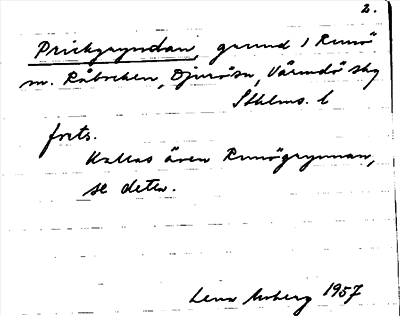 2.
Prickgryndan, grund i Runö
m. Råbocken, Djurö sn, Värmdö skg
Sthlms. l
forts.
Kallas även Runögrynnan,
se detta.
Lena Moberg 1957